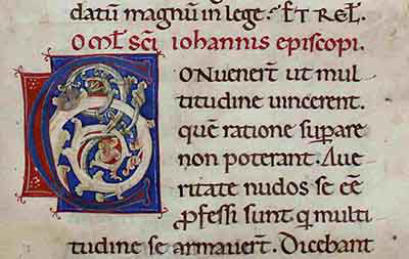 datũ magnũ in lege. ⁊ REL̃.
OML̃ SCĨ iohannis episcopi.
CONuener̃t ut mul
titudine uincerent.
quẽ ratione supare
non poterant. Aue
ritate nudos se eẽ
ꝓfessi sunt q̃ multi
tudine se armauer̃t. Dicebant